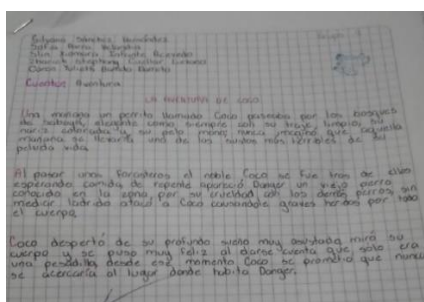 Sánchez Hernández
Sofía
Infante
Stephany Cuellar
Julieth
Cuentos Aventura
LA AVENTURA DE COCO
Una mañana un perrito llamado Coco paseaba por los bosques
de elegante como siempre con su traje limpio, su
nariz colorada y su pelo mono, nunca imaginó que aquella
mañana se llevaría uno de los sustos más terribles de su
peluda vida.
Al pasar unos forasteros el noble Coco se fue tras de ellos
esperando comida de repente apareció Danger un viejo perro
conocido en la zona por su crueldad con los demás perros, sin
medir ladrido atacó a Coco causandole graves heridas por todo
el cuerpo.
Coco despertó de su profundo sueño muy asustado miró su
cuerpo y se puso muy feliz al darse cuenta que solo era
una pesadilla, desde ese momento Coco se prometió que nunca
se acercaría al lugar donde habita Danger.